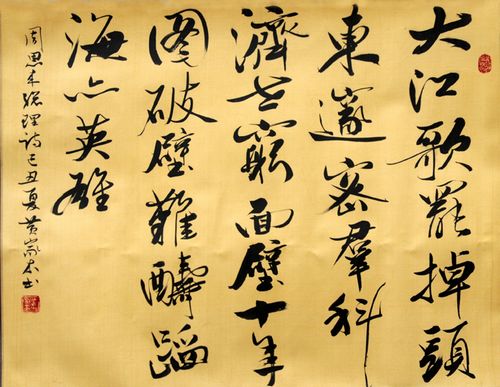 大江歌罷掉頭
東邃密羣科
濟世窮面壁十年
圖破壁難醻蹈
海亦英雄
周恩來總理詩己丑夏黃